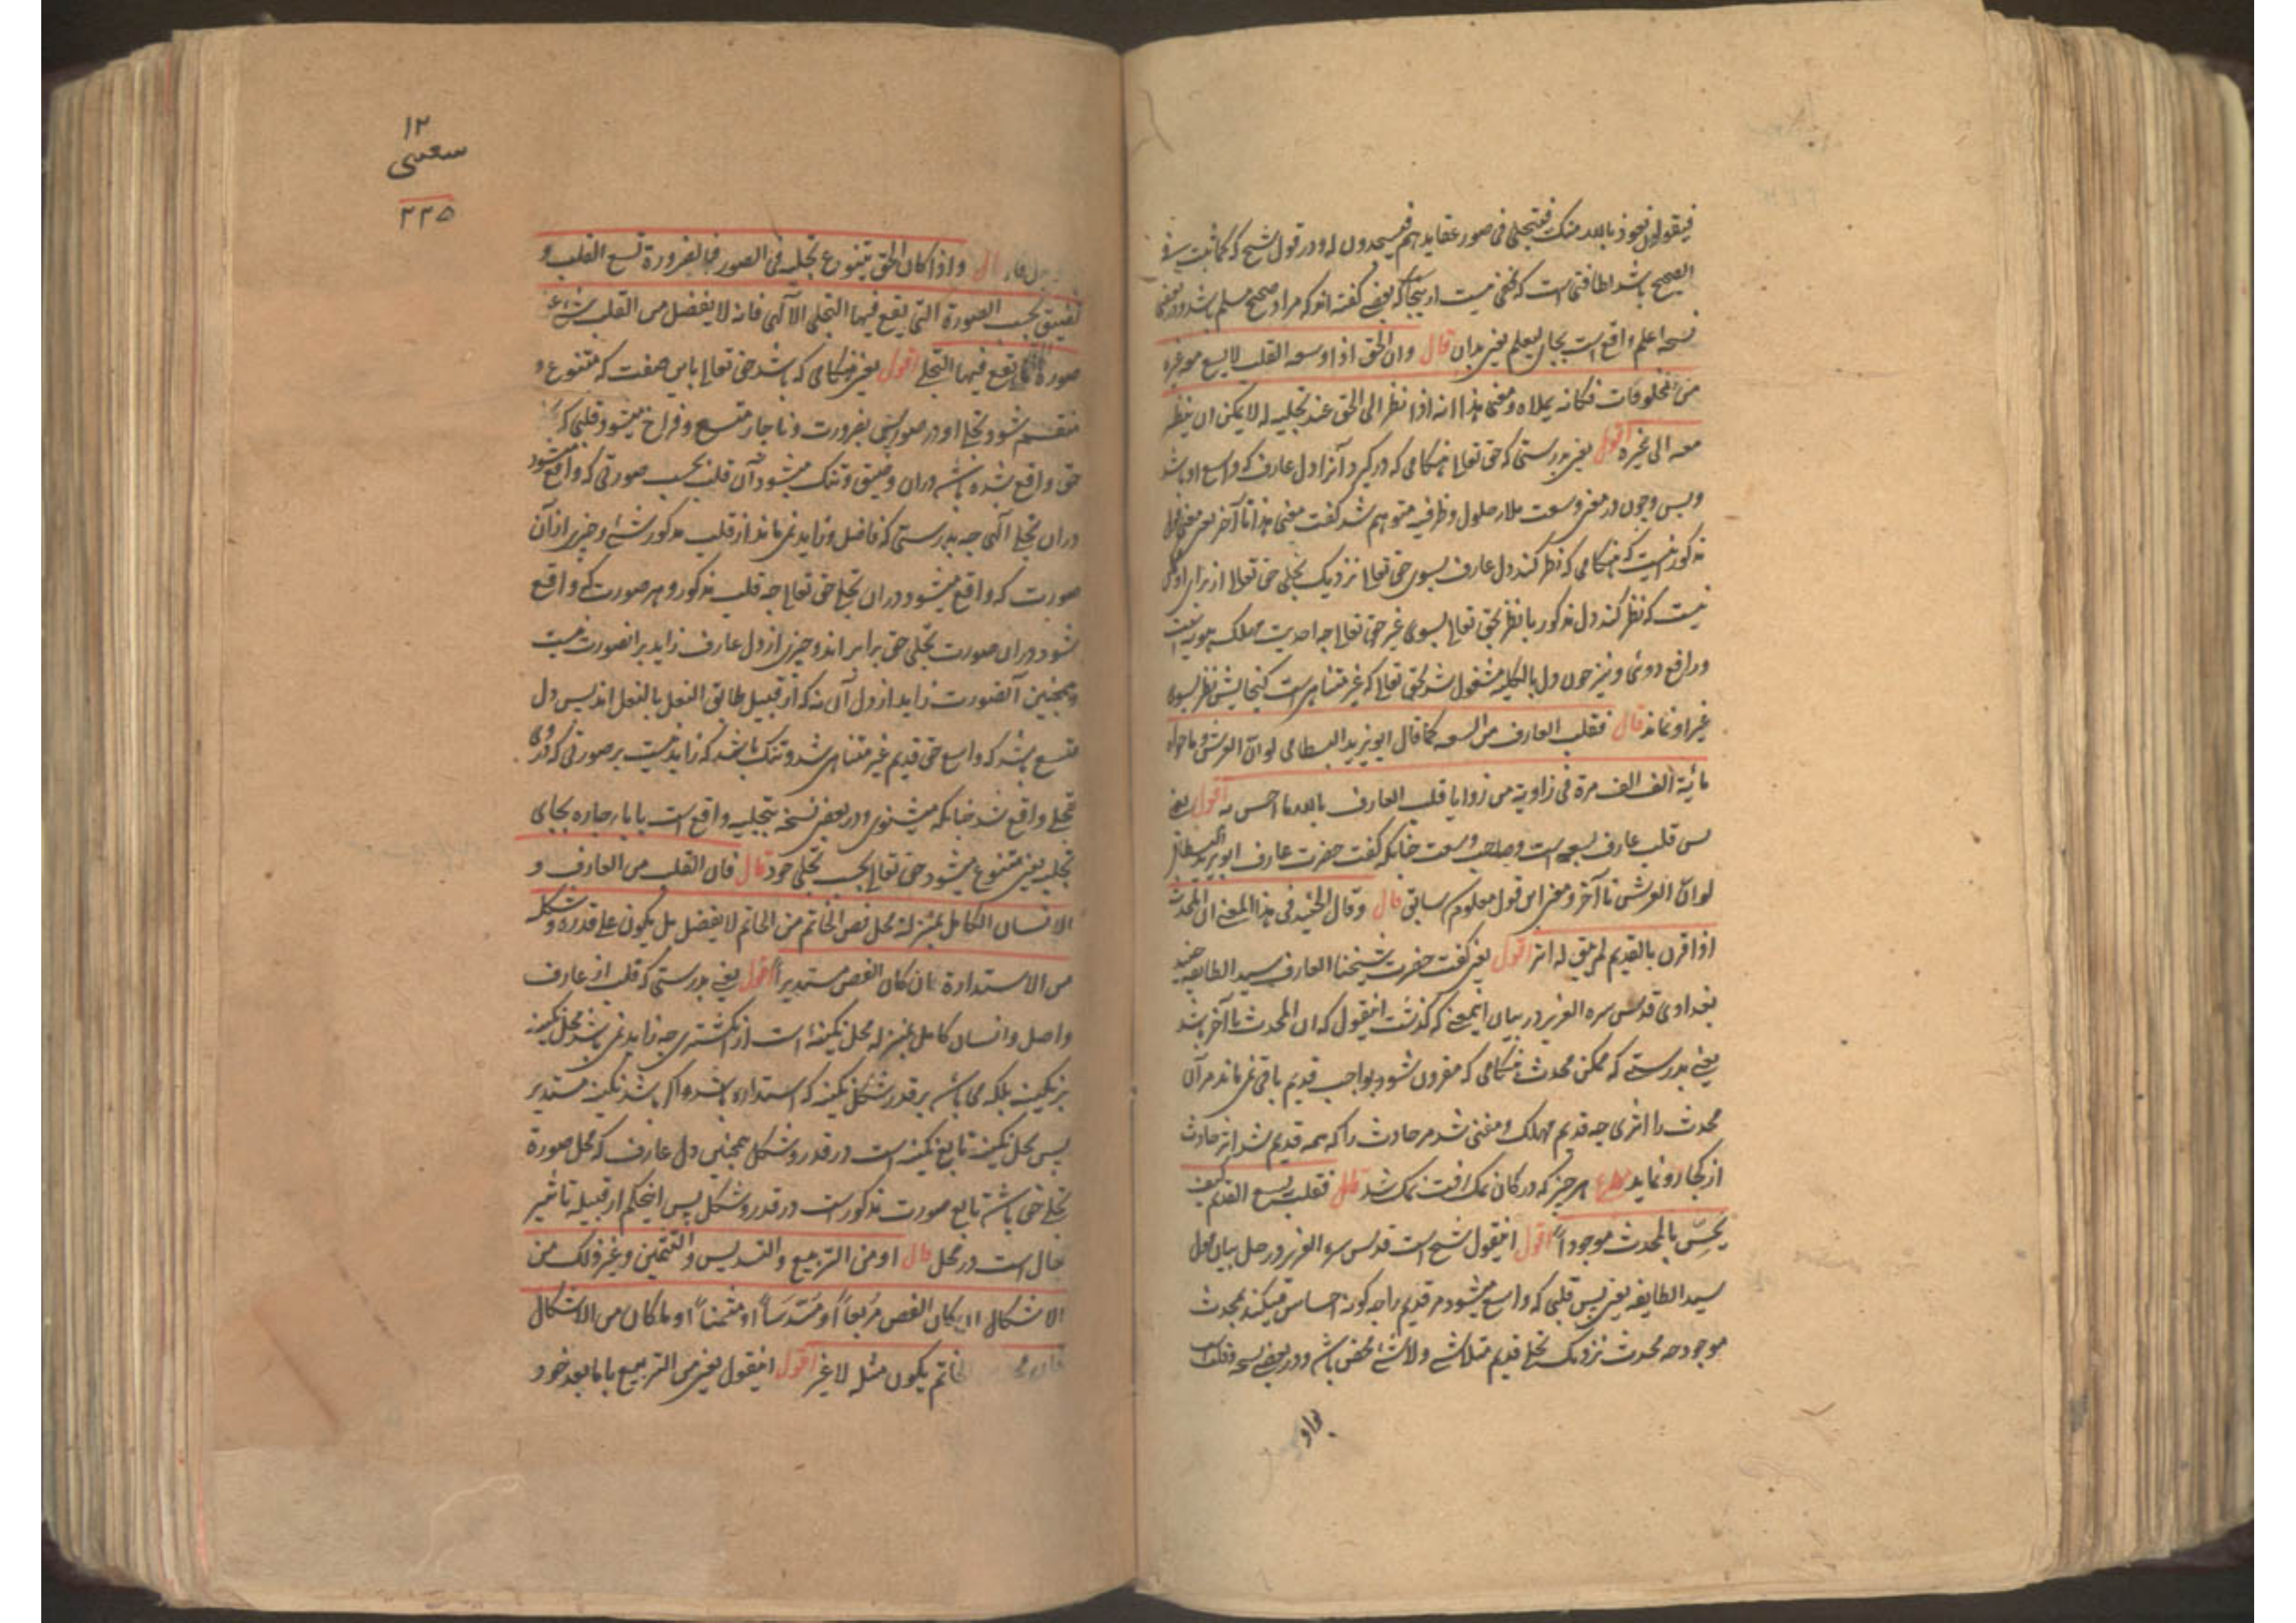 فیقولون نعوذ بالله منک فیتجلی فی صور عقایدهم فیسجدون له و در قول شیخ که کما ثبت فی
الصحیح باشد لطافتی است که مخفی نیست از ینجا که بعضی گفته اند که مراد صحیح مسلم باشد و در بعضی
نسخه اعلم واقع است بجای لیعلم یعنی بدان قال وان الحق اذا وسعه القلب لا یسع معه غیره
من المخلوقات فکانه یملاه و معنی هذا انه اذا نظر الی الحق عند تجلیه له لا یمکن ان ینظر
معه الی غیره اقول یعنی بدرستی که حق تعالی هنگامی که در گیرد آنرا دل عارف که واسع او باشد
وبس و چون در معنی وسعت ملا و حلول و ظرفیه متوهم شد گفت معنی هذا تا آخر یعنی معنی
مذکور اینست که هنگامی که نظر کند دل عارف بسوی حق تعالی نزدیک تجلی حق تعالی از برای او ممکن
نیست که نظر کند دل مذکور با نظر بحق تعالی بسوی غیر حق تعالی چه احدیت مهلک
و رافع دوئی و نیز چون دل بالکلیه مشغول شد بحق تعالی که غیر متناهی است گنجایش نظر بسوی
غیر او نماند قال فقلب العارف من السعه کما قال ابویزید البسطامی لو ان العرش و ما حواه
مائیة الف الف مرة فی زاویة من زوایا قلب العارف بالله ما احس به اقول یعنی
پس قلب عارف بسعه است و صاحب وسعت چنانکه گفت حضرت عارف ابویزید البسطامی
لو ان العرش تا آخر و معنی این قول معلوم سابق قال وقال الجنید فی هذا المعنی ان المحدث
اذا قرن بالقدیم لم یبق له اثر اقول یعنی گفت حضرت شیخنا العارف سید الطایفه جنید
بغدادی قدس سره العزیز در بیان اینمعنی که گذشت اینقول که ان المحدث تا آخر باشد
یعنی بدرستی که ممکن محدث هنگامی که مقرون شود بواجب قدیم باقی نمی ماند مر آن
محدث را اثری چه قدیم مهلک و مفنی شد مر حادث را که همه قدیم شد اثر حادث
از کجا رو نماید ع هر چیز که در کان نمک افتد نمک شد قال فقلب یسع القدیم کیف
یحس بالمحدث موجوداً اقول اینقول شیخ است قدس سره العزیز در حل بیان قول
سید الطایفه یعنی پس قلبی که واسع میشود مر قدیم را چه گونه احساس میکند بمحدث
موجود چه محدث نزدیک تجلی قدیم متلاشی و لا شئ محض باشد و در بعضی نسخه
بواو
۱۲
۲۲۵
قال واذا کان الحق یتنوع تجلیه فی الصور فبالضرورة تسع القلب و
تضیق بحسب الصورة التی یقع فیها التجلی الالهی فانه لا یفضل من القلب شئ عن
صورة ما یقع فیها التجلی اقول یعنی هنگامی که باشد حق تعالی باین صفت که متنوع و
منقسم شود تجلی او در صور پس بضرورت و ناچار متسع و فراخ میشود قلبی که
حق واقع شده باشد دران و ضیق و تنگ میشود آن قلب بحسب صورتی که واقع میشود
دران تجلی الهی چه بدرستی که فاضل و زاید نمی ماند از قلب مذکور شئ و چیزی از آن
صورت که واقع میشود دران تجلی حق تعالی چه قلب مذکور و هر صورت که واقع
شود دران صورت تجلی حق برابر اند و چیزی از دل عارف زاید بر انصورت نیست
و همچنین آنصورت زاید از دل آن نه که از قبیل طابق النعل بالنعل اند پس دل
متسع باشد که واسع حق قدیم غیر متناهی شد و تنگ باشد که زاید نیست بر صورتی که دروی
تجلی واقع شد چنانکه میشنوی و در بعضی نسخه بتجلیه واقع است با بای جاره بجای
تجلیه یعنی متنوع میشود حق تعالی بحسب تجلی خود قال فان القلب من العارف و
الانسان الکامل بمنزلة محل فص الخاتم من الخاتم لا یفضل بل یکون علی قدره و شکله
من الاستدارة ان کان الفص مستدیراً اقول یعنی بدرستی که قلب از عارف
واصل و انسان کامل بمنزله محل نگینه است از انگشتری چه زاید نمی باشد محل نگینه
بر نگینه بلکه می باشد بر قدر و شکل نگینه که استداره باشد اگر باشد نگینه مستدیر
پس محل نگینه تابع نگینه است در قدر و شکل همچنین دل عارف که محل صورة
تجلی حق باشد تابع صورت مذکور است در قدر و شکل پس اینحکم از قبیله تاثیر
حال است در محل قال او من التربیع والتسدیس والتثمین و غیر ذلک من
الاشکال ان کان الفص مربعاً او مسدساً او مثمناً او ما کان من الاشکال
فان محله من الخاتم یکون مثله لا غیر اقول اینقول یعنی من التربیع با ما بعد خود